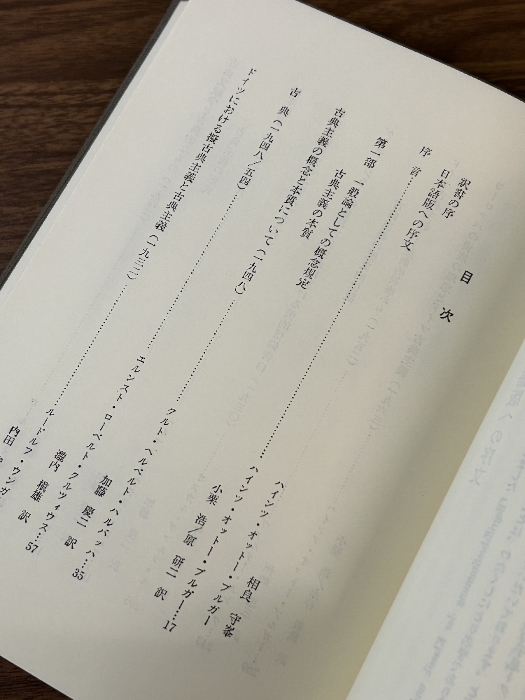 目次
訳書の序 相良 守峯
日本語版への序文 ハインツ・オットー・ブルガー
序言 ハインツ・オットー・ブルガー
小栗 浩/原 研二 訳
第一部 一般論としての概念規定
古典主義の本質
古典主義の概念と本質について(一九四八) クルト・ヘルベルト・ハルバッハ 17
加藤 慶二 訳
古典(一九四八/五四) エルンスト・ローベルト・クルツィウス 35
滝内 槇雄 訳
ドイツにおける擬古典主義と古典主義(一九三二) ルードルフ・ウンガ 57
内田